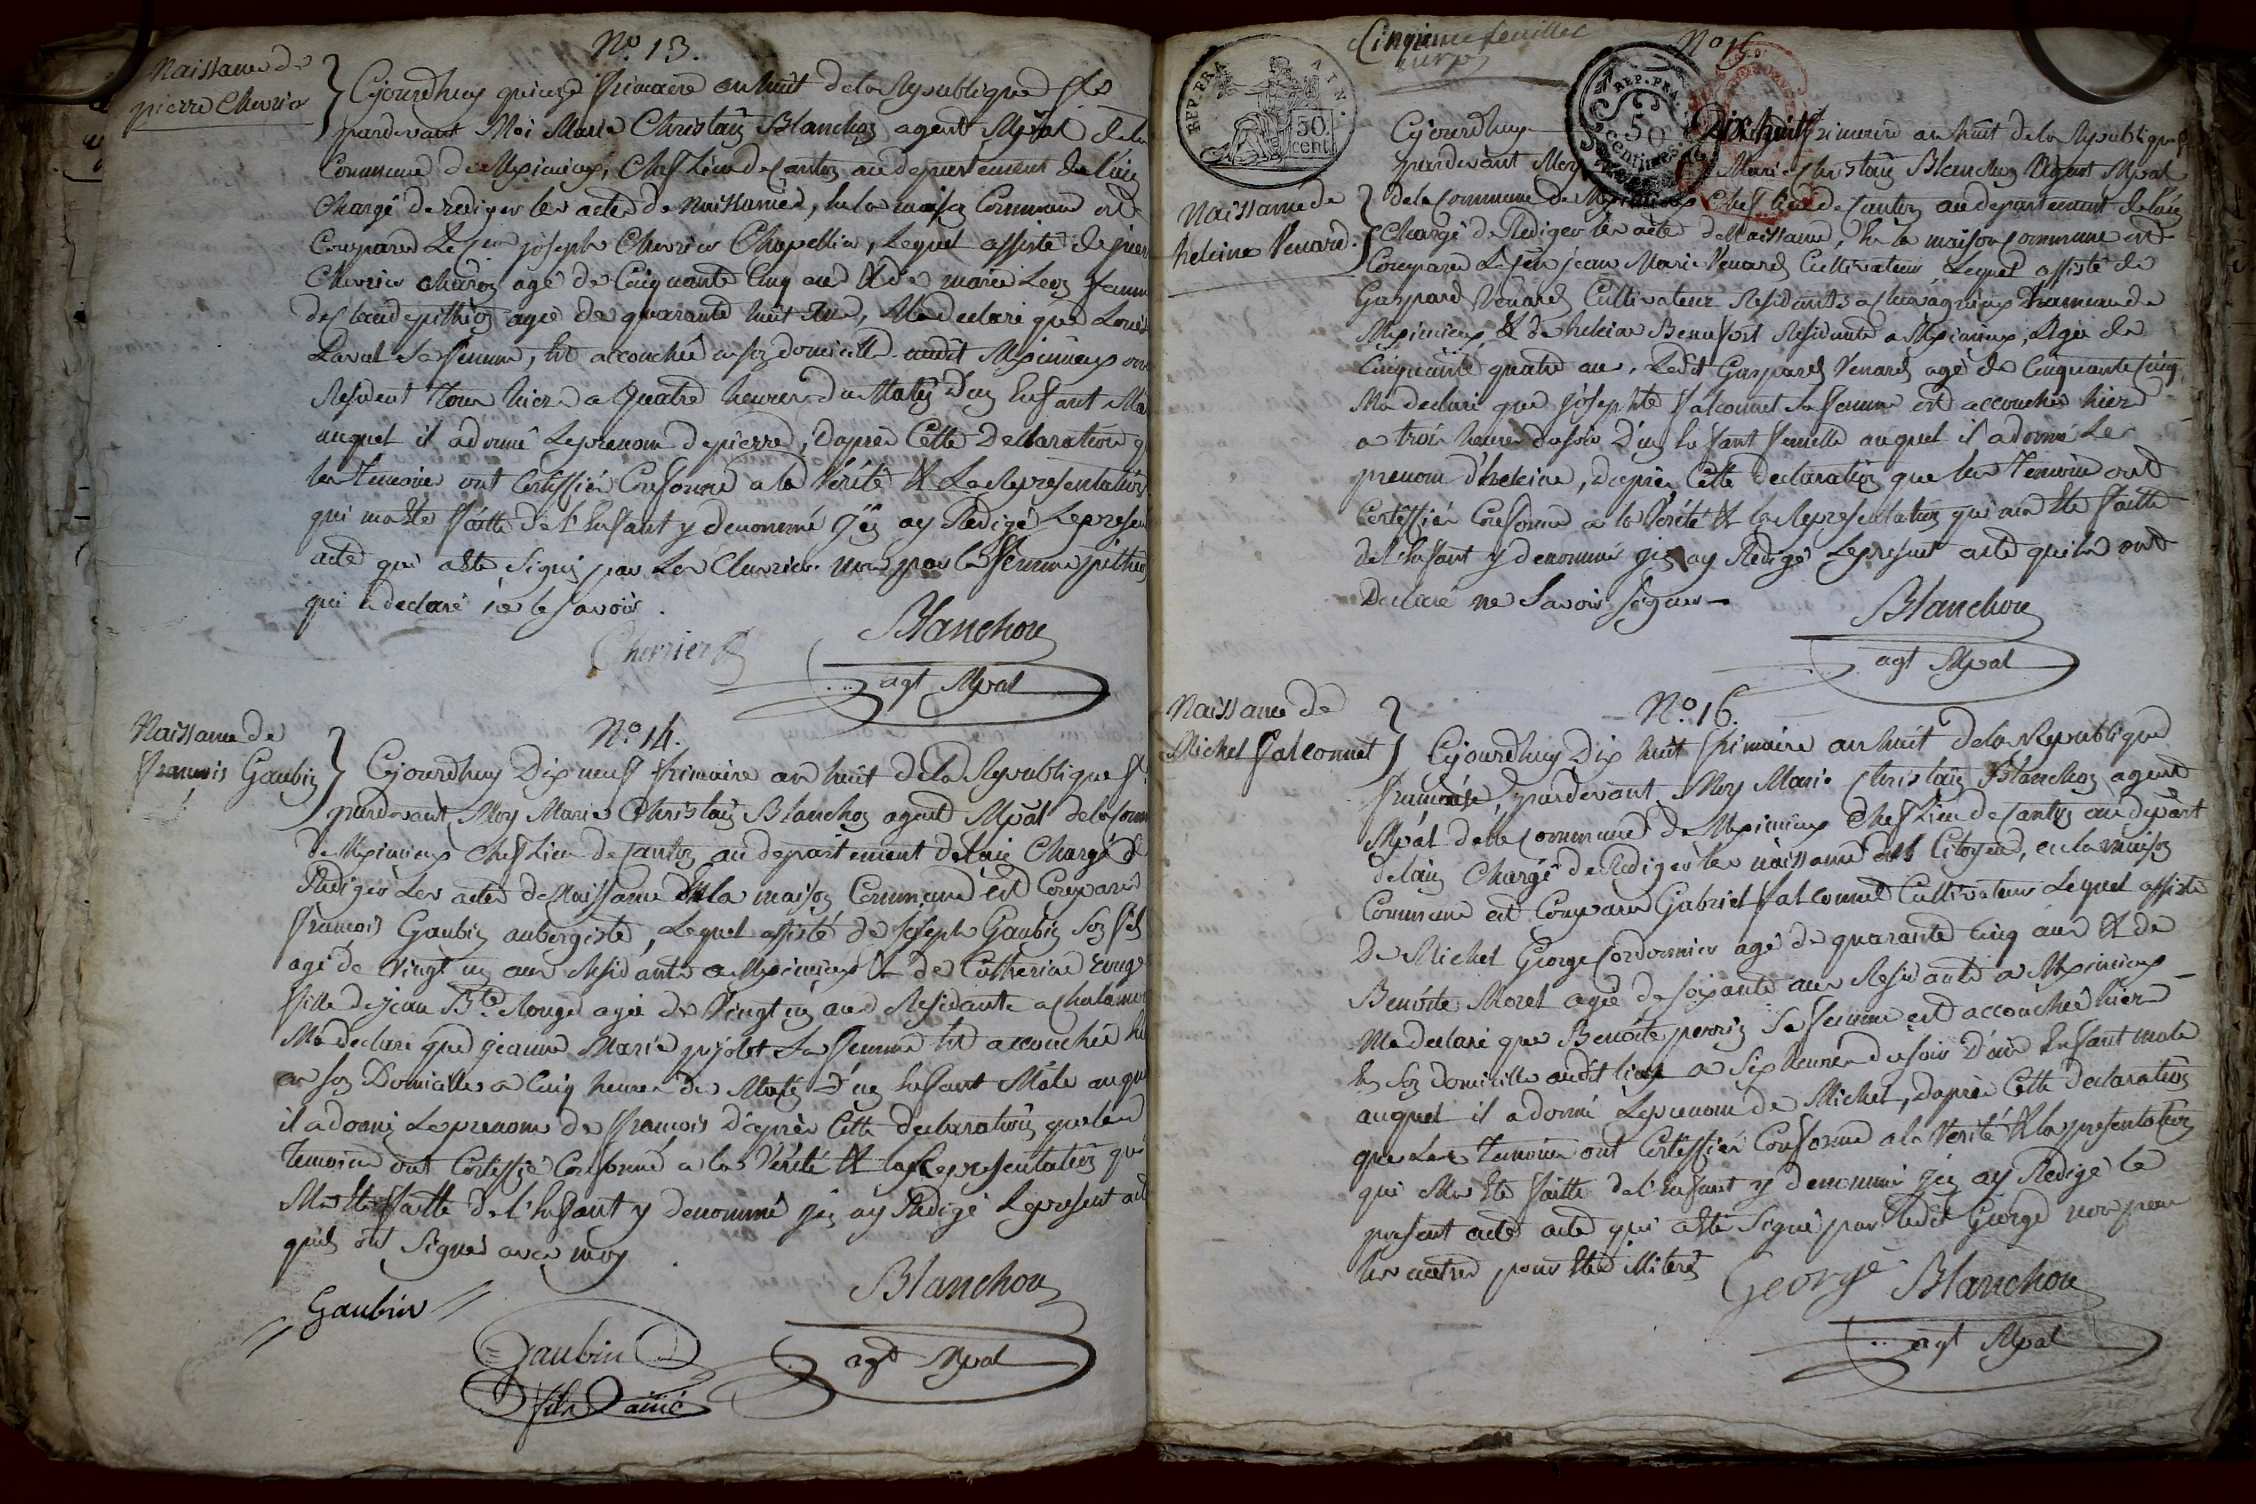 N.º 13.
Naissance de
pierre Chevrier
Cejourdhuy quinze frimaire an huit de la Republique fse
pardevant Moi Marie Christain Blanchon agent Mpal de la
Commune de Meximieux, Chef Lieu de Canton au departement de lain
Chargé de rediger les actes de Naissances, En la maison Commune est
Comparu Le Cen joseph Chevrier Chapellier, Lequel assisté de pierre
Chevrier charon agé de Cinquante Cinq ans & de marie Leon femme
de Claude pithion agée de quarante huit ans, Ma declaré que Louise
Laval Sa femme, Est accouchée en son domicille audit Meximieux ou
Resident Tous hier a Quatre heures du Matin D'un Enfant Mal
auquel il a donné Le prenom de pierre, d'après Cette Declaration q
les temoins ont Certiffié Conforme a la Vérité & La Representation
qui ma Eté faitte de l'Enfant y denommé j'en ay Redigé Le present
acte qui a Eté Signé par Les Chevrier non par la femme pithion
qui a declaré ne le savoir.
Chevrier
Blanchon
agt Mpal
N.º 14.
Naissance de
francois Gaubin
Cejourdhuy Dix neuf frimaire an huit de la Republique f.
pardevant Moy Marie Christain Blanchon agent Mpal de la Comm
de Meximieux chef Lieu de Canton au departement de lain Chargé de
Rediger Les actes de Naissance En la maison Commune est Comparu
francois Gaubin aubergiste, Lequel assisté de Joseph Gaubin Son fils
agé de Vingt un ans Residants a Meximieux & de Catherine Rouge
fille de jean Bte Rouge agée de Vingt un ans Residante a Chalamon
Ma declaré que jeanne Marie pujolet Sa femme Est accouchée hi
en son Domicille a Cinq heures du Matin D'un Enfant Mâle auque
il a donné Le prenom de francois D'après Cette declaration que les
Temoins ont Certiffié Conforme a la Vérité & la Representation qui
Ma Eté faitte de l'Enfant y denommé j'en ay Redigé Le present act
quils ont Signés avec moy
Gaubin
Gaubin
fils ainé
Blanchon
agt Mpal
Cinquieme feuillet
REP. FRA.
50.
cent.
REP. FRA.
50
Centimes
N.º 15
Naissance de
heleine Venard.
Cejourdhuy Dix huit frimaire an huit de la Republique f
pardevant Moy Marie Christain Blanchon Agent Mpal
de la Commune de Meximieux Chef Lieu de Canton au departement de lain
Chargé de Rediger les actes de Naissance, En la maison Commune est
Comparu Le Cen jean Marie Venard Cultivateur Lequel assisté de
Gaspard Venard Cultivateur Residants a Chavagnieux hameau de
Meximieux, & de heleine Beaufort Residante a Meximieux, Agée de
Cinquante quatre ans, Ledit Gaspard Venard agé de Cinquante Cinq,
Ma declaré que Josephte falconnet Sa femme est accouchée hier
a trois heures du soir D'un Enfant femelle auquel il a donné Le
prenom d'heleine, d'après Cette declaration que les Temoins ont
Certiffié Conforme a la Vérité & la Representation qui ma Eté faitte
de l'Enfant y denommé j'en ay Redigé Le present acte quils ont
Declaré ne Savoir Signer
Blanchon
agt Mpal
N.º 16.
Naissance de
Michel falconnet
Cejourdhuy Dix huit frimaire an huit de la Republique
francaise, pardevant Moy Marie Christain Blanchon agent
Mpal de la Commune de Meximieux Chef Lieu de Canton au depart
de lain Chargé de Rediger les naissance des Citoyens, en la maison
Commune est Comparu Gabriel falconnet Cultivateur Lequel assisté
De Michel George Cordonnier agé de quarante Cinq ans & de
Benoite Moret agée de soixante ans Residants a Meximieux
Ma declaré que Benoite perrin Sa femme est accouchée hier
En Son domicille audit lieu a Six heures du soir D'un Enfant male
auquel il a donné Le prenom de Michel, dapres Cette declaration
que Les Temoins ont Certiffié Conforme a la Verité & la presentation
qui Ma Eté faitte de l'Enfant y denommé j'en ay Redigé le
present acte acte qui a Eté Signé par Ledit George non par
les autres pour Etre illiterés
George
Blanchon
agt Mpal